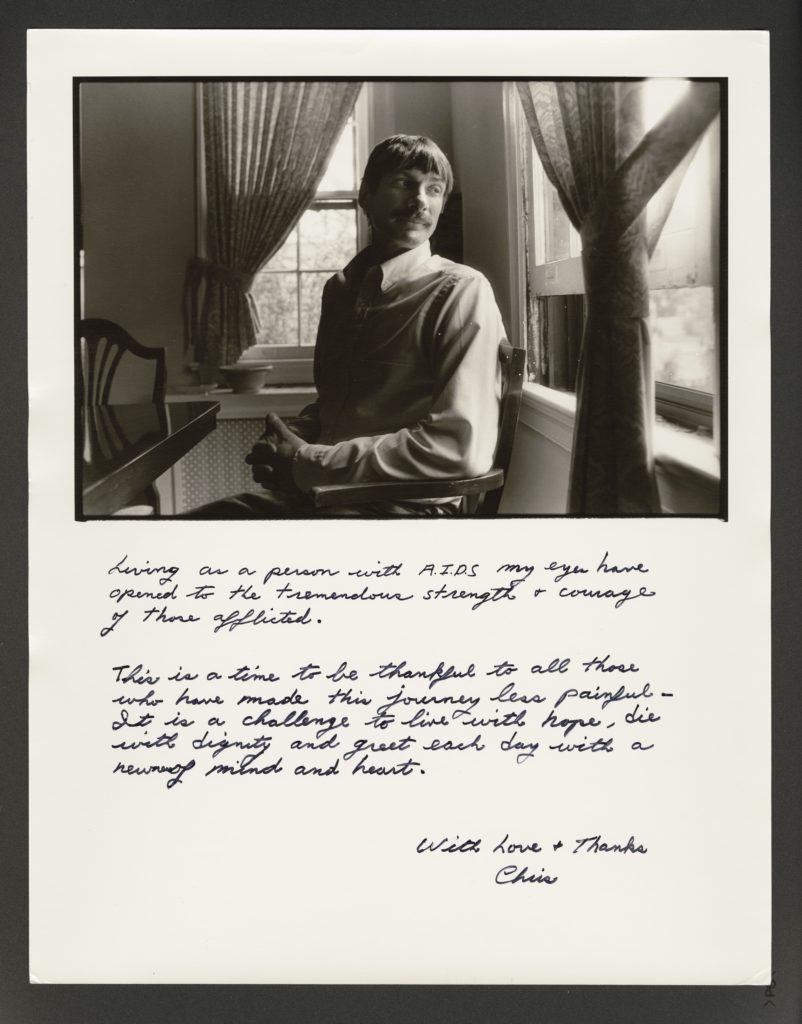 Living as a person with A.I.D.S my eyes have
opened to the tremendous strength + courage
of those afflicted.
This is a time to be thankful to all those
who have made this journey less painful –
It is a challenge to live with hope, die
with dignity and greet each day with a
of mind and heart.
With Love + Thanks
Chris